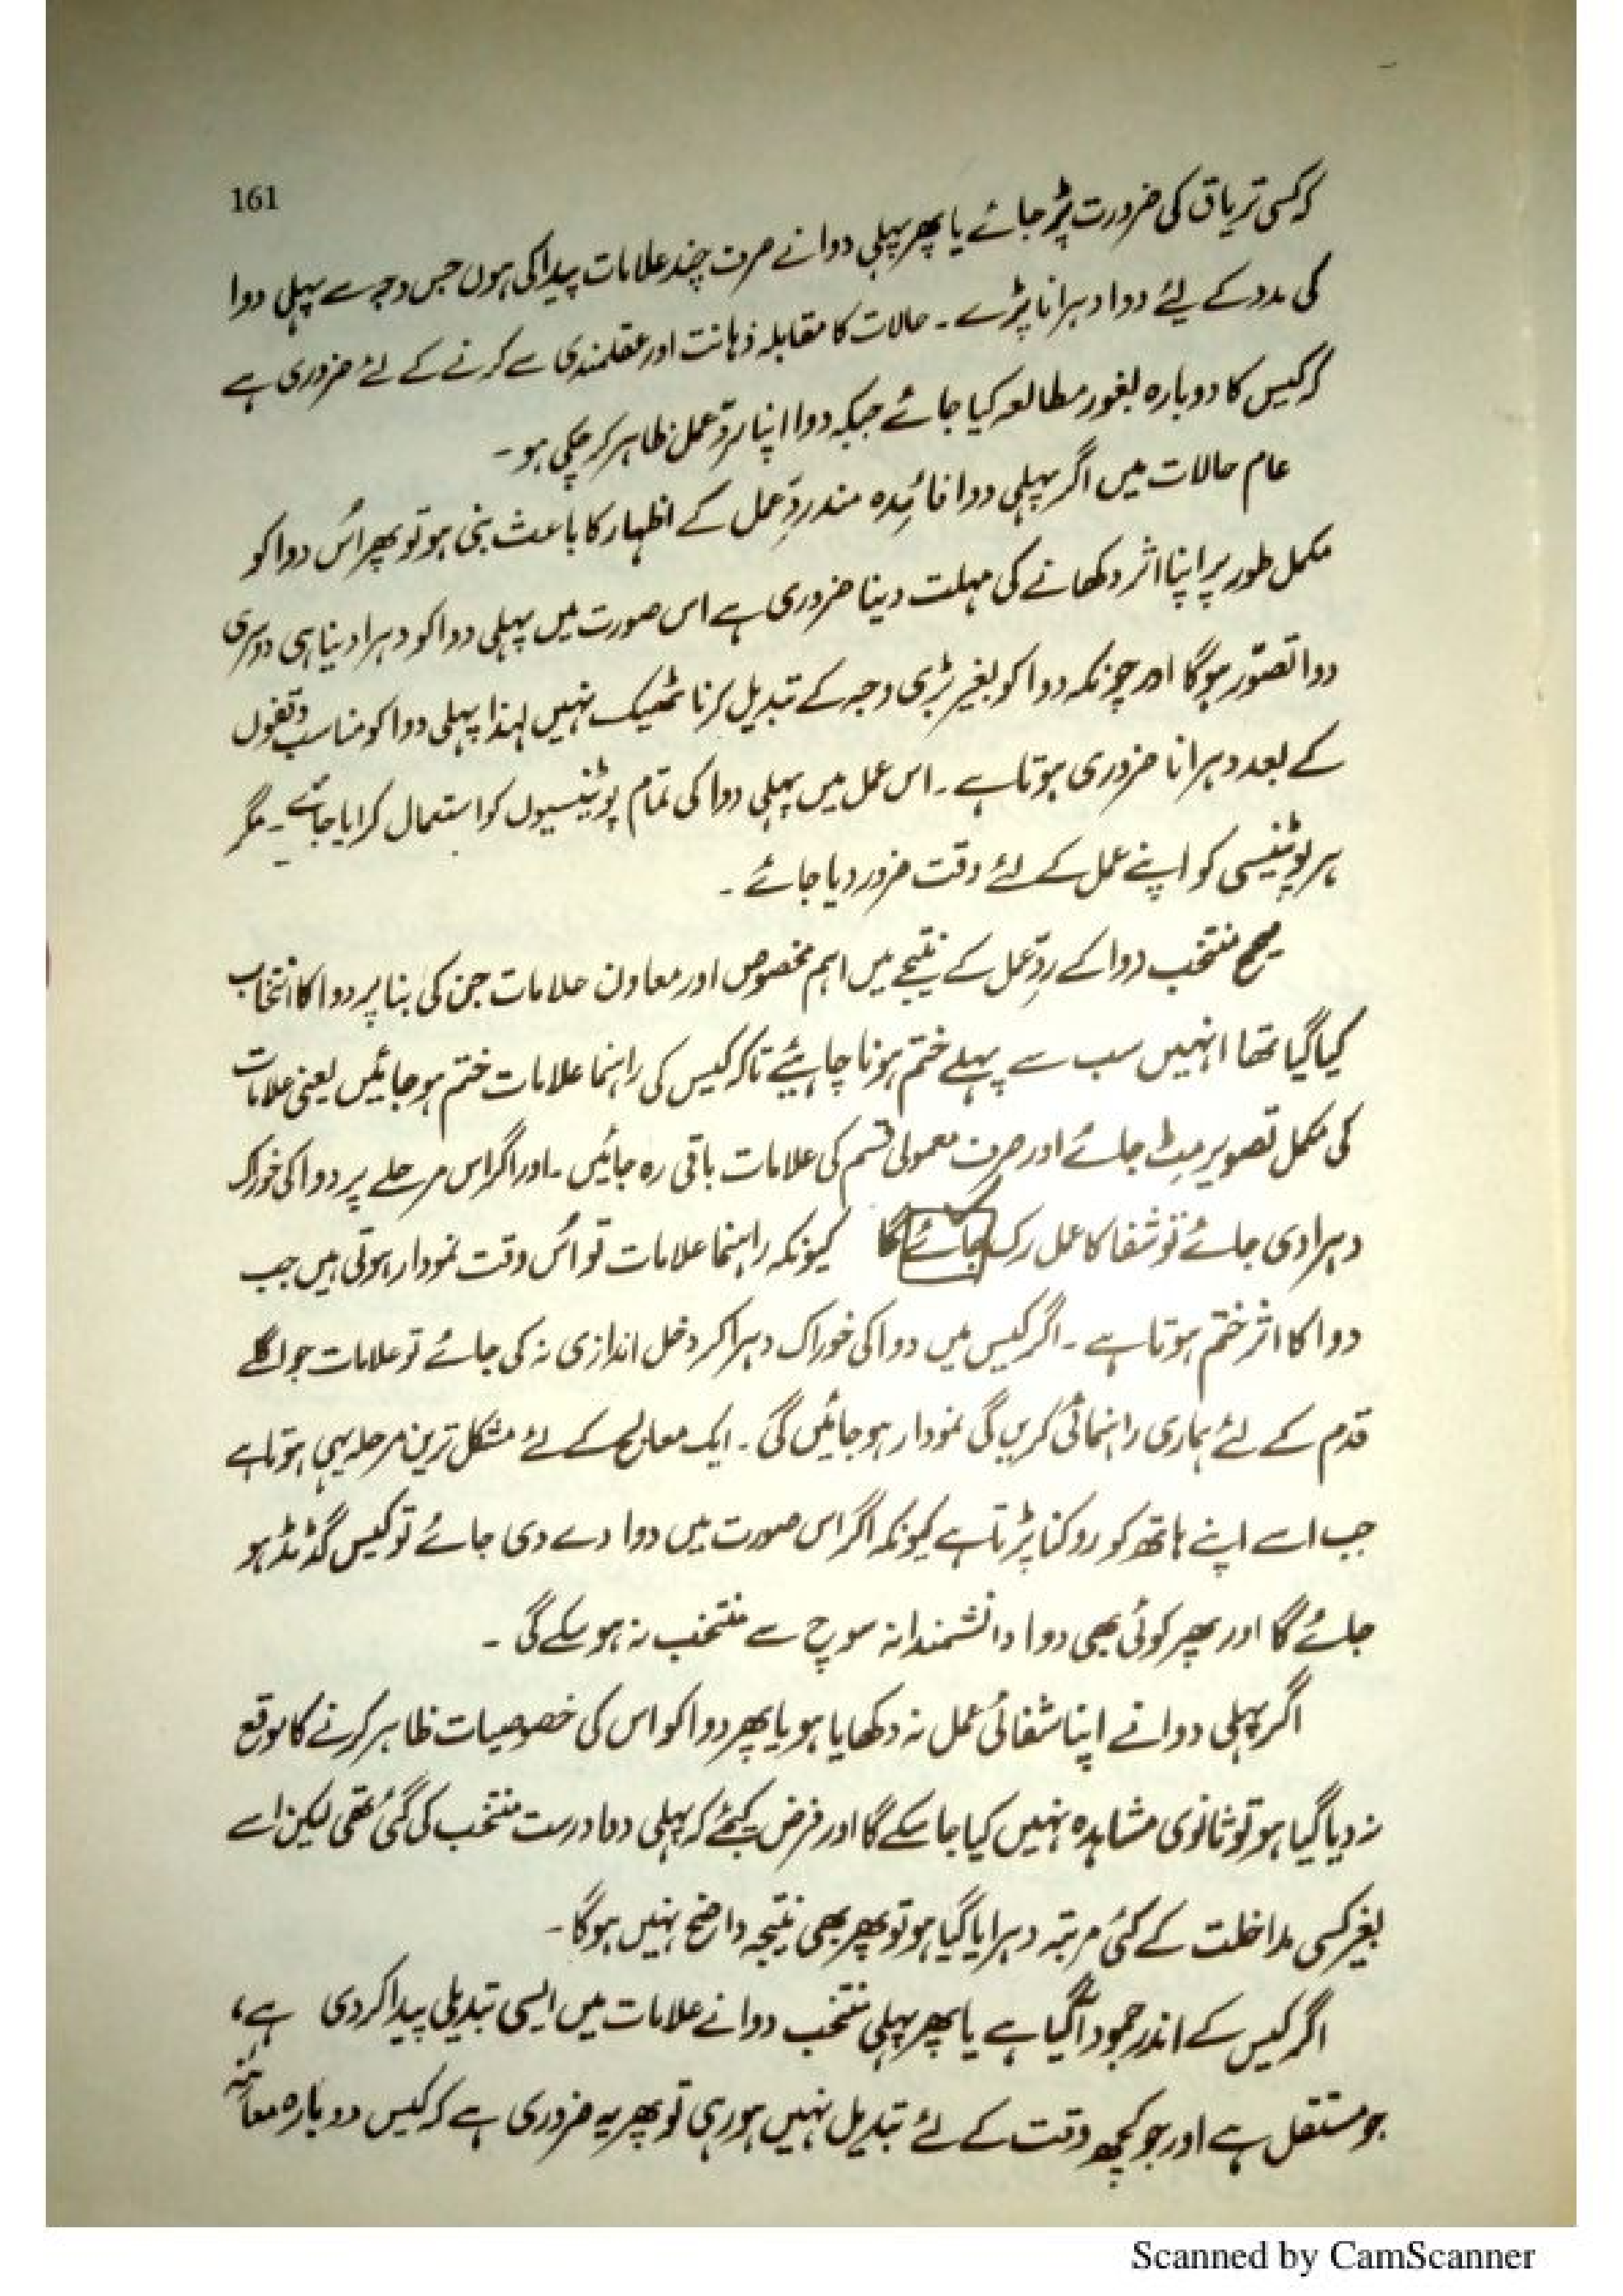 161
کہ کسی تریاق کی ضرورت پڑ جائے یا پھر پہلی دوا نے صرف چند علامات پیدا کی ہوں جس وجہ سے پہلی دوا
کی مدد کے لئے دوا دہرانا پڑے۔ حالات کا مقابلہ ذہانت اور عقلمندی سے کرنے کے لئے ضروری ہے
کہ کیس کا دوبارہ بغور مطالعہ کیا جائے جبکہ دوا اپنا ردّعمل ظاہر کر چکی ہو۔
عام حالات میں اگر پہلی دوا فائدہ مند ردِّعمل کے اظہار کا باعث بنی ہو تو پھر اُس دوا کو
مکمل طور پر اپنا اثر دکھانے کی مہلت دینا ضروری ہے اس صورت میں پہلی دوا کو دہرا دینا ہی دوسری
دوا تصوّر ہوگا اور چونکہ دوا کو بغیر بڑی وجہ کے تبدیل کرنا ٹھیک نہیں لہذا پہلی دوا کو مناسب وقفوں
کے بعد دہرانا ضروری ہوتا ہے۔ اس عمل میں پہلی دوا کی تمام پوٹینسیوں کو استعمال کرایا جائے۔ مگر
ہر پوٹینسی کو اپنے عمل کے لئے وقت ضرور دیا جائے۔
صحیح منتخب دوا کے ردِّعمل کے نتیجے میں اہم مخصوص اور معاون علامات جن کی بنا پر دوا کا انتخاب
کیا گیا تھا انہیں سب سے پہلے ختم ہونا چاہیئے تاکہ کیس کی راہنما علامات ختم ہو جائیں یعنی علامات
کی مکمل تصویر مٹ جائے اور صرف معمولی قسم کی علامات باقی رہ جائیں۔ اور اگر اس مرحلے پر دوا کی خوراک
دہرا دی جائے تو شفا کا عمل رک جائے گا کیونکہ راہنما علامات تو اُس وقت نمودار ہوتی ہیں جب
دوا کا اثر ختم ہوتا ہے۔ اگر کیس میں دوا کی خوراک دہرا کر دخل اندازی نہ کی جائے تو علامات جو اگلے
قدم کے لئے ہماری راہنمائی کریں گی نمودار ہو جائیں گی۔ ایک معالج کے لئے مشکل ترین مرحلہ یہی ہوتا ہے
جب اسے اپنے ہاتھ کو روکنا پڑتا ہے کیونکہ اگر اس صورت میں دوا دے دی جائے تو کیس گڈمڈ ہو
جائے گا اور پھر کوئی بھی دوا دانشمندانہ سوچ سے منتخب نہ ہو سکے گی۔
اگر پہلی دوا نے اپنا شفائی عمل نہ دکھایا ہو یا پھر دوا کو اس کی خصوصیات ظاہر کرنے کا موقع
نہ دیا گیا ہو تو ثانوی مشاہدہ نہیں کیا جا سکے گا اور فرض کیجئے کہ پہلی دوا درست منتخب کی گئی تھی لیکن اسے
بغیر کسی مداخلت کے کئی مرتبہ دہرایا گیا ہو تو پھر بھی نتیجہ واضح نہیں ہوگا۔
اگر کیس کے اندر جمود آگیا ہے یا پھر پہلی منتخب دوا نے علامات میں ایسی تبدیلی پیدا کر دی ہے،
جو مستقل ہے اور جو کچھ وقت کے لئے تبدیل نہیں ہو رہی تو پھر یہ ضروری ہے کہ کیس دوبارہ معائنہ
Scanned by CamScanner